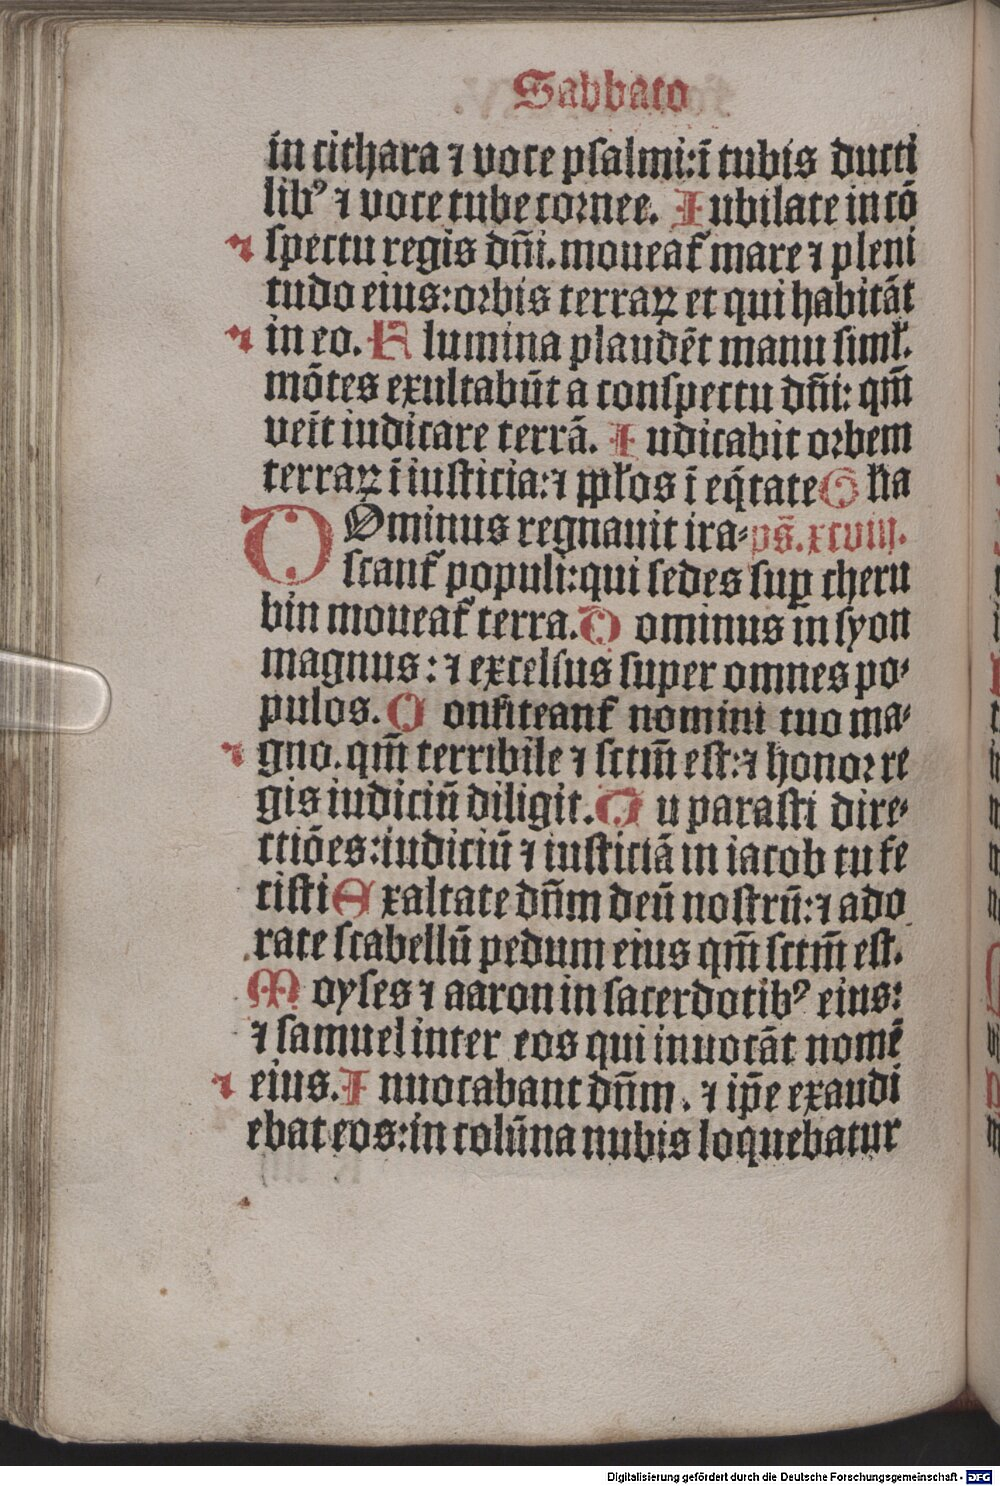 Sabbato
in cithara ⁊ voce psalmi: ī tubis ducti
libꝰ ⁊ voce tube cornee. Iubilate in cō
⁊ spectu regis dn̄i. moueat᷑ mare ⁊ pleni
tudo eius: orbis terraꝝ et qui habitāt
⁊ in eo. Flumina plaudēt manu siml̓.
mōtes exultabūt a conspectu dn̄i: qm̄
veīt iudicare terrā. Iudicabit orbem
terraꝝ ī iusticia: ⁊ pp̄los ī eq̄tate Gl̓ia
DOminus regnauit ira⸗ ps̄. xcviii.
scant᷑ populi: qui sedes sup̱ cheru
bin moueat᷑ terra. Dominus in syon
magnus: ⁊ excelsus super omnes po⸗
pulos. Confiteant᷑ nomini tuo ma⸗
⁊ gno. qm̄ terribile ⁊ sctm̄ est: ⁊ honor re
gis iudiciū diligit. Tu parasti dire⸗
ctiōes: iudiciū ⁊ iusticiā in iacob tu fe
cisti Exaltate dn̄m deū nostrū: ⁊ ado
rate scabellū pedum eius qm̄ sctm̄ est.
Moyses ⁊ aaron in sacerdotibꝰ eius:
⁊ samuel inter eos qui inuocāt nomē
⁊ eius. Inuocabant dn̄m. ⁊ ip̄e exaudi
ebat eos: in colūna nubis loquebatur
Digitalisierung gefördert durch die Deutsche Forschungsgemeinschaft - DFG